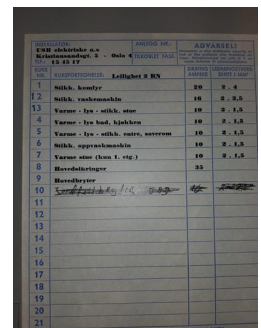 INSTALLATØR: ANLEGG NR.: ADVARSEL!
USH elektriske a.s
Kristianssandsgt. 5 - Oslo 4 TILKOBLET FASE:
Tlf.: 15 45 17
KURS NR. KURSFORTEGNELSE: Leilighet 2 RN SIKRING AMPERE
1 Stikk. komfyr 20 2 . 4
12 Stikk. vaskemaskin 16 2 . 2,5
13 Varme - lys - stikk. stue 10 2 . 1,5
4 Varme - lys bad, kjøkken 10 2 . 1,5
5 Varme - lys - stikk. entre, soverom 10 2 . 1,5
6 Stikk. oppvaskmaskin 10 2 . 1,5
7 Varme stue (kun 1. etg.) 10 2 . 1,5
8 Hovedsikringer 35
9 Hovedbryter
10
11
12
13
14
15
16
17
18
19
20
21